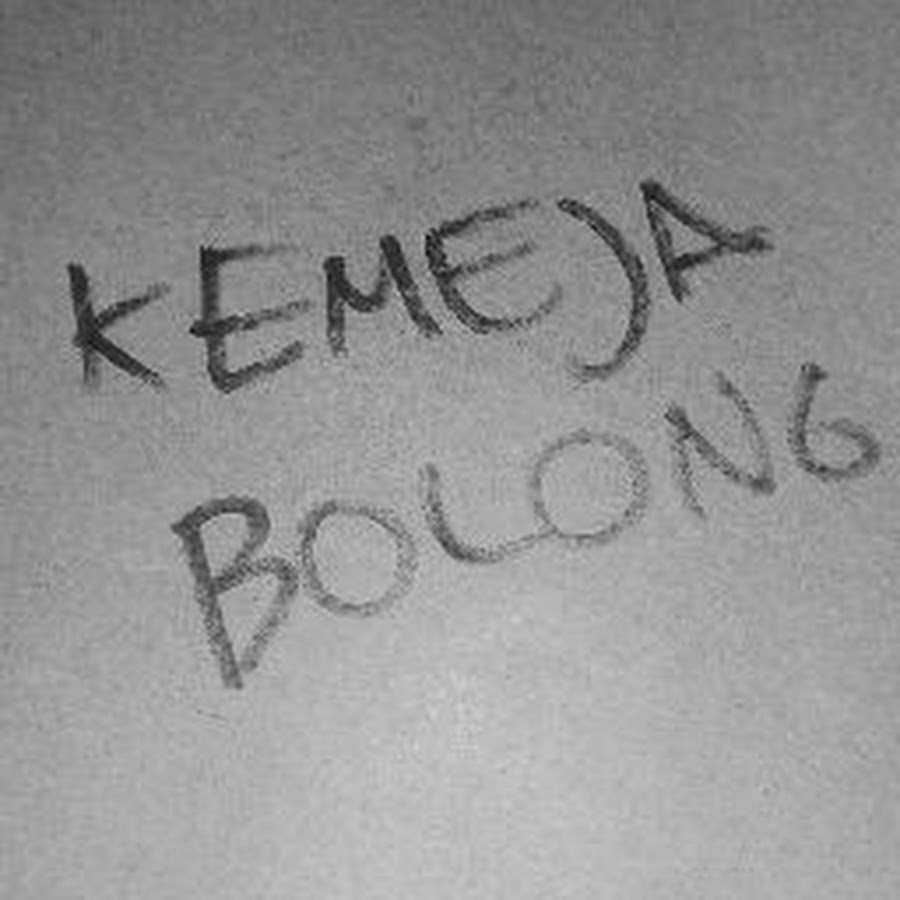 KEMEJA
BOLONG